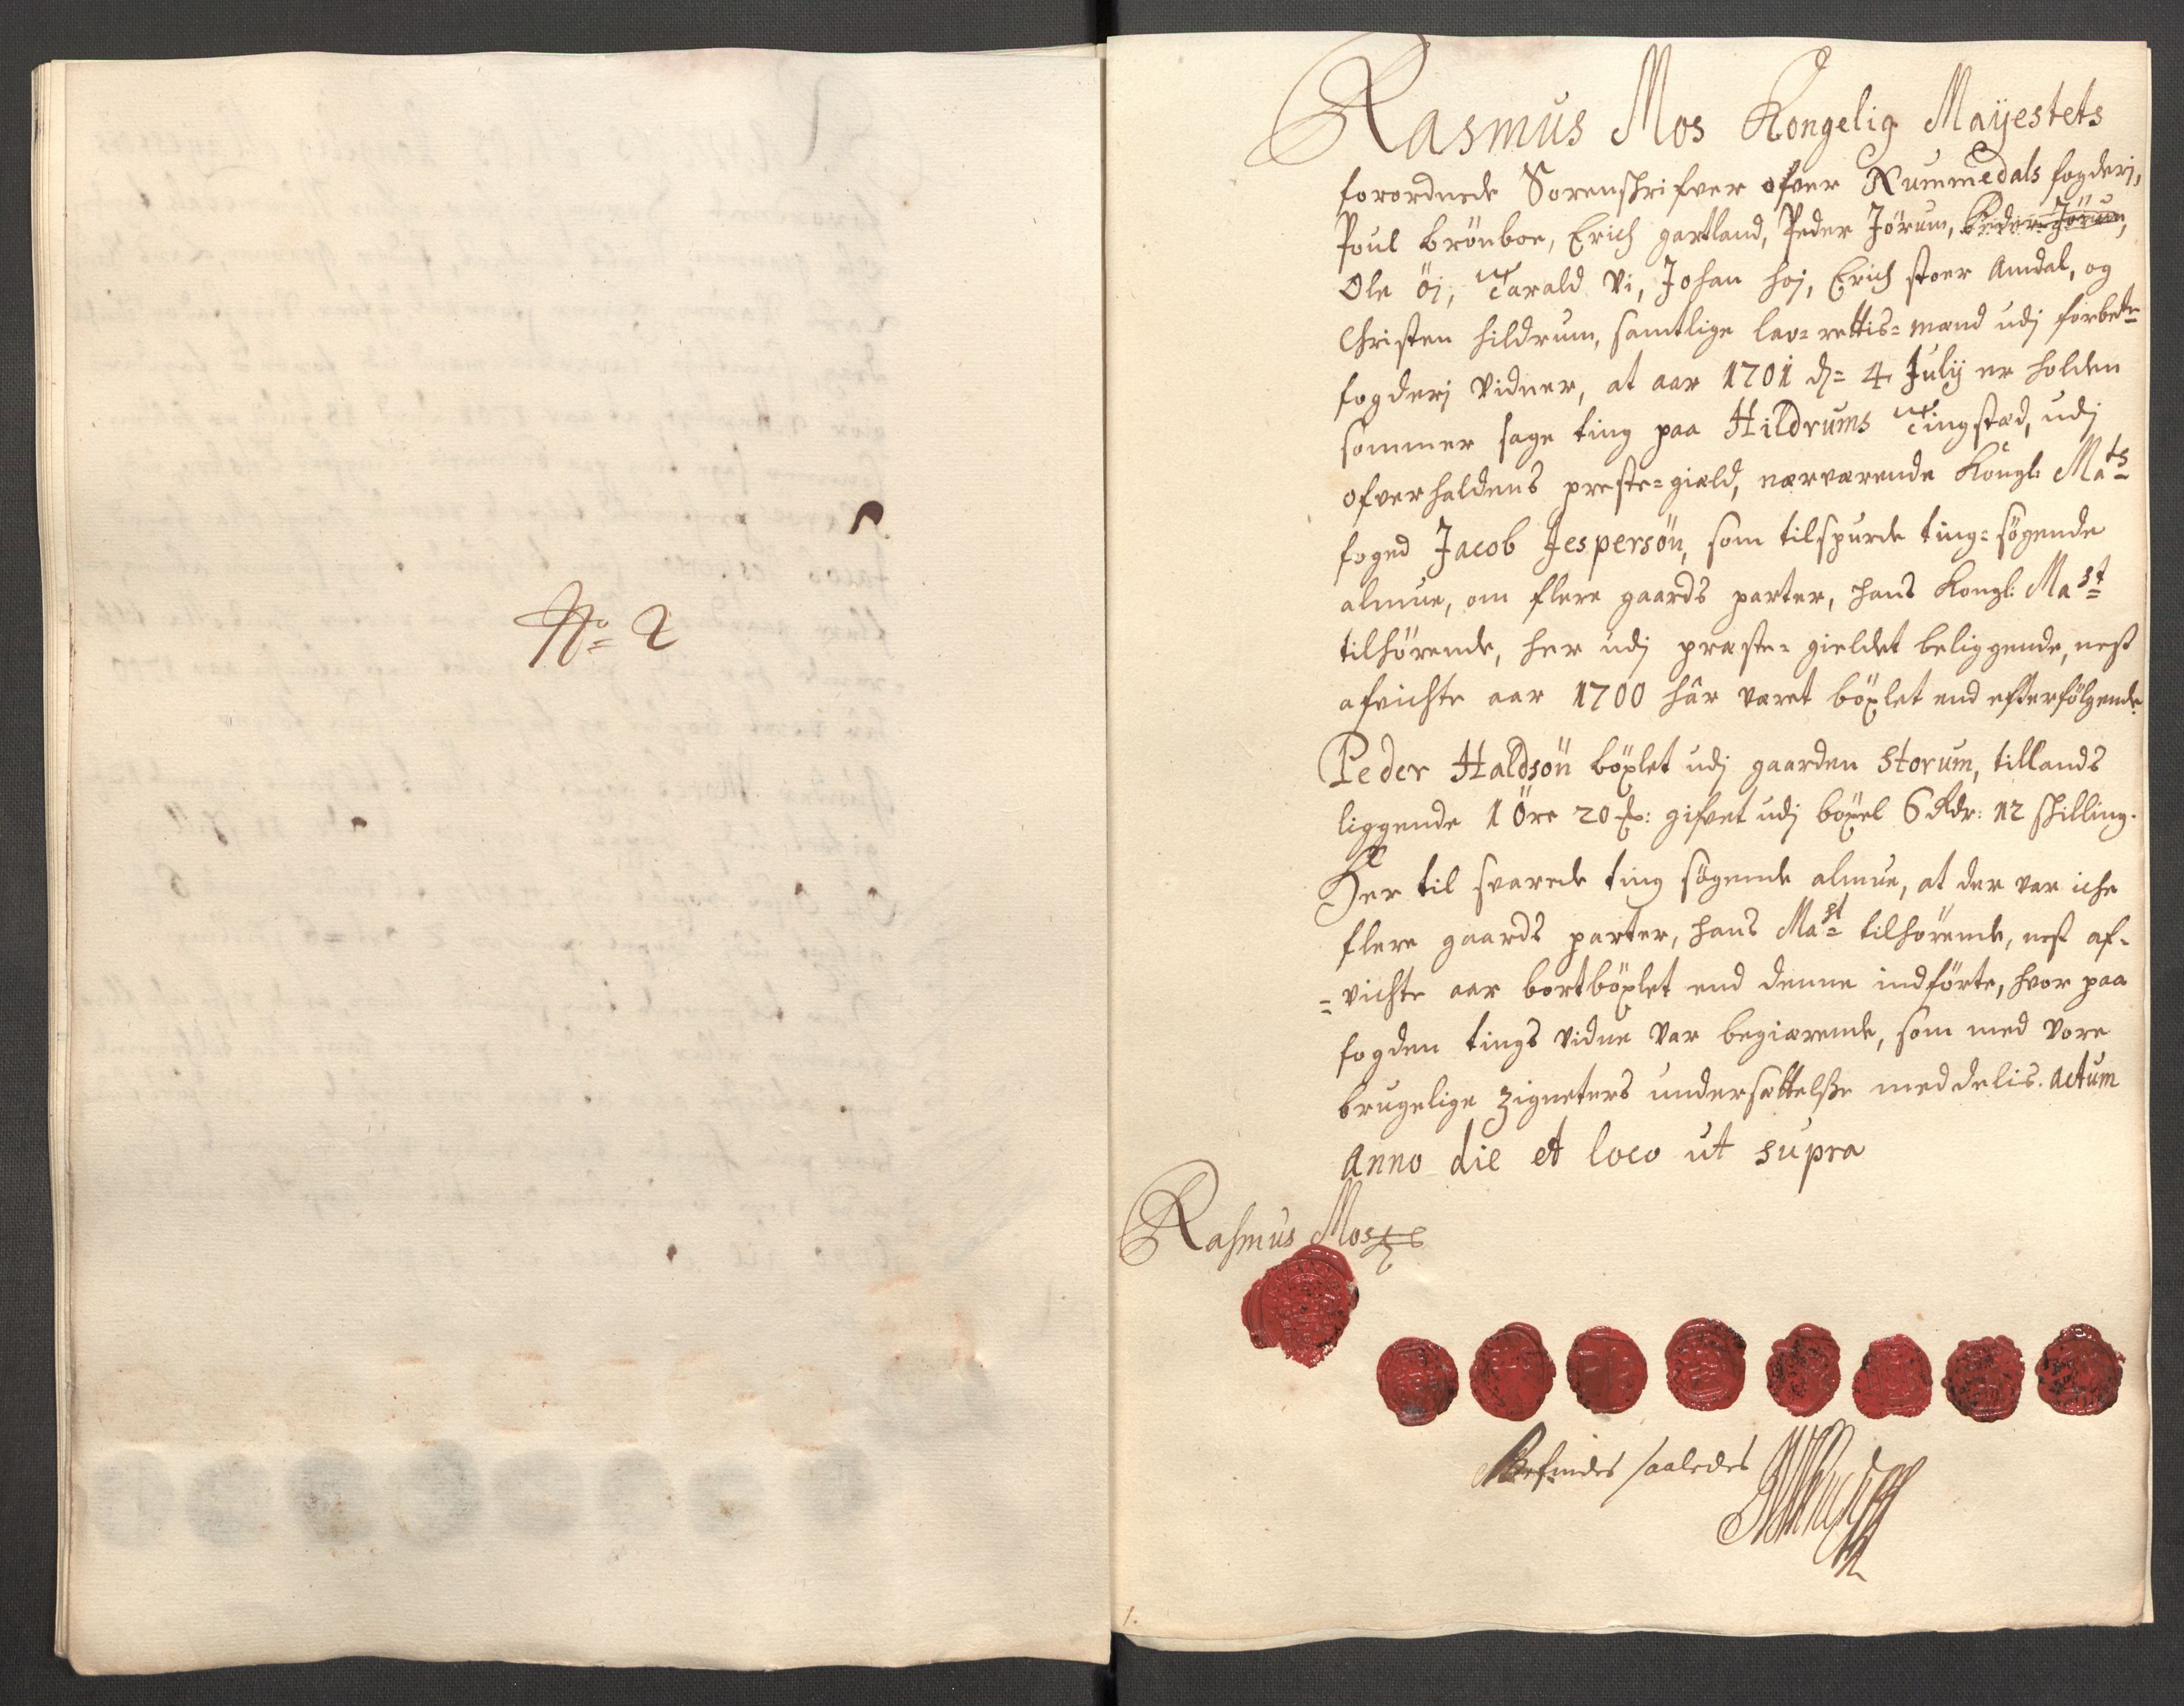 No 2
Rasmus Mos Kongelig Mayestets
forordnede Sorenskrifver ofver Nummedals fogderj,
Poul Brönboe, Erich gartland, Peder Jörum, Peder Jörum,
Ole öj, Tarald Vi, Johan hoj, Erich stoer Amdal, og
Christen hildrum, samtlige lav-rettis-mænd udj forbete
fogderj Vidner, at aar 1701 d: 4 Julij er holden
sommer sage ting paa Hildrums Tingstæd, udj
ofverhaldens preste-giæld, nærværende Kongl: Mats
foged Jacob Jespersön, som tilspurde ting-sögende
almue, om flere gaards parter, hans Kongl: Mast
tilhörende, her udj præste-gieldet beliggende, nest
afvichte aar 1700 hâr været böxlet end efterfölgende
Peder Haldsön böxlet udj gaarden Storum, tillands
liggende 1 Öre 20 gifvet udj böxel 6 Rdr: 12 skilling.
Her til svarede ting sögende almue, at der var iche
flere gaards parter, hans Mast tilhörende, nest af-
=vichte aar bortböxlet end denne indförte, hvor paa
fogden tings vidne Var begiærende, som med vore
brugelige zigneters undersættelsse meddelis. Actum
Anno die et loco ut supra
Rasmus Mos
Befindes saaledes
1.